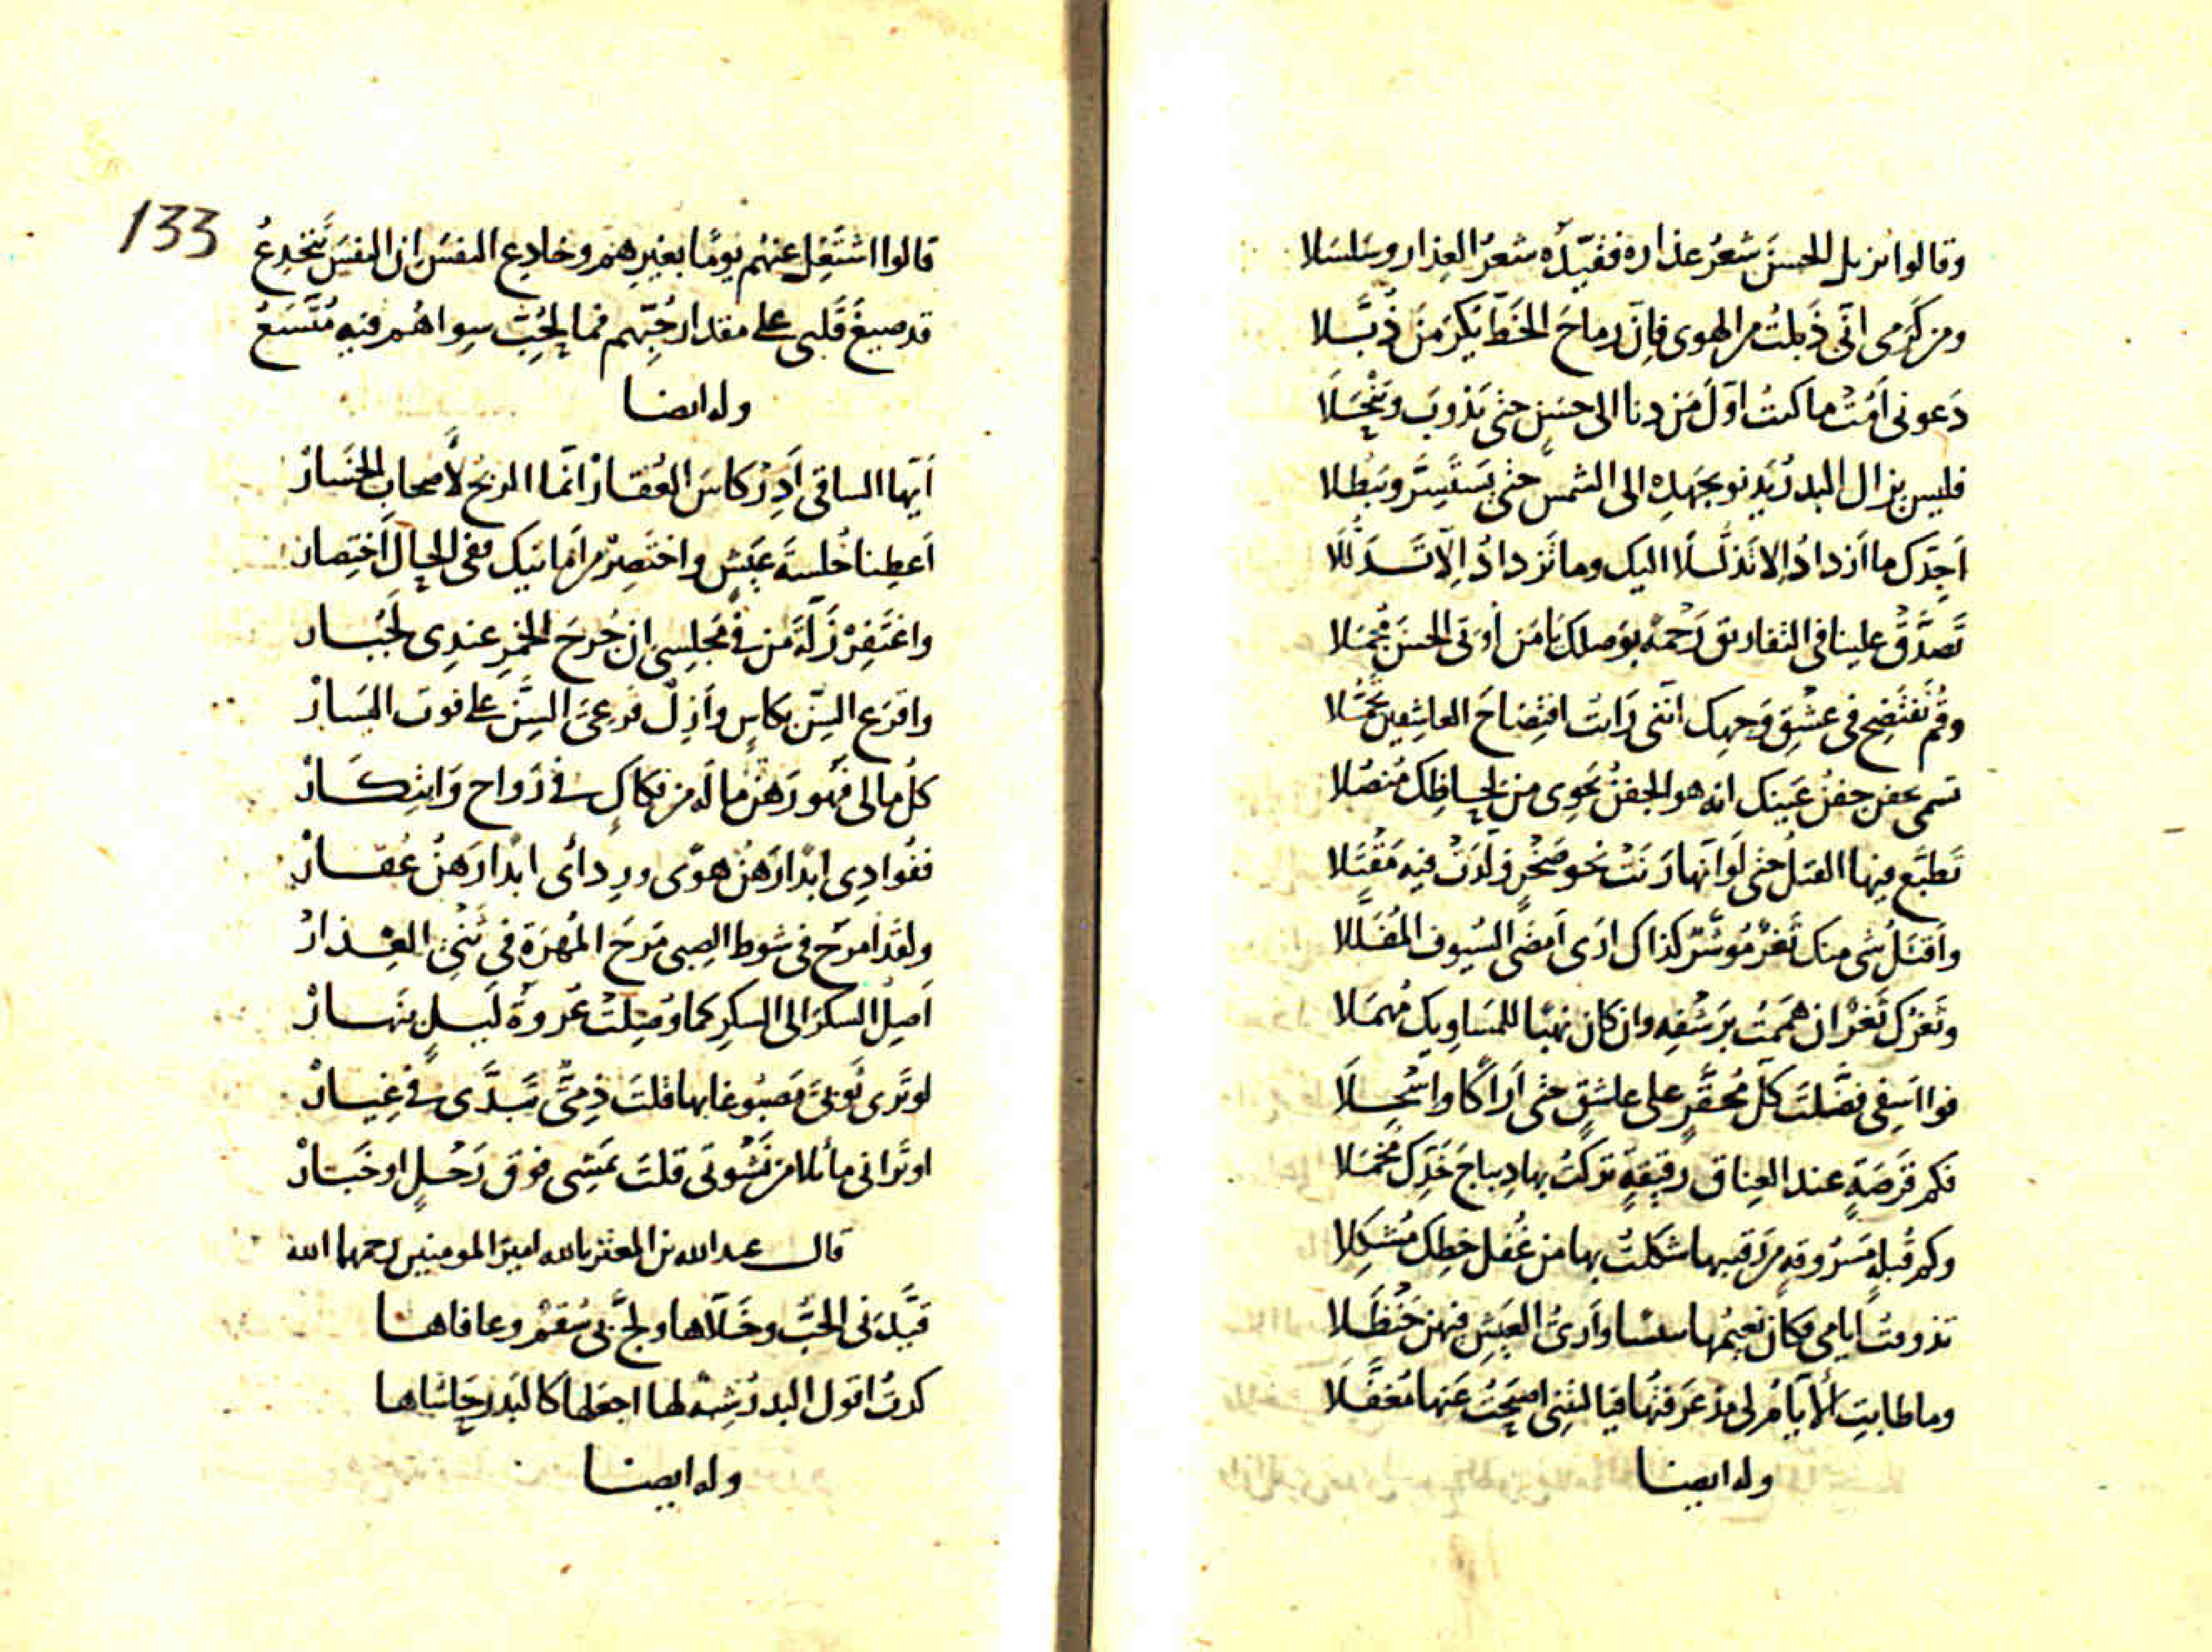 وقالوا نزيل الحسن شعر عذاره فقيّده شعر العذار وسلسلا
ومن كرمى انى ذبلت من الهوى فان رماح الخط يكرمن ذبّلا
دعونى امت ما كنت اوّل من دنا الى حسن حتى يذوب وينحلا
فليس يزال البدر يدنو بجهده الى الشمس حتى يستسرّ ويبطلا
اجدّك ما ازداد الا تذلّلا اليك وما تزداد الّا تدلّلا
تصدّق علينا فى التفاريق رحمة بوصلك يا من أوتى الحسن مجملا
وقم نفتضح فى عشق وجهك اننى رايت افتضاح العاشقين تجمّلا
تسمى بجفن جفن عينك انه هو الجفن يحوى من لحاظك منصلا
تطبّع فيها القتل حتى لو انها رنت نحو صخر ولّدت فيه مقتلا
وأقتل شى منك ثغر موشّر كذاك ارى امضى السيوف المفلّلا
وثغرك ثغر ان هممت برشفه وان كان نهبا للمساويك مهملا
فوا اسفى فضّلت كلّ محقّر على عاشق حتى اراكا واسحلا
فكم قرصة عند العناق رقيقة تركت بها ديباج خدّك مخملا
وكم قبلة مسروقة من رقيبها شكلت بها من غفل خطك مشكلا
تذوقت ايامى فكان نعيمها وأرى العيش فيهن حنظلا
وما طابت الايّام لى مذ عرفتها فيا ليتنى اصبحت عنها مغفّلا
وله ايضا
133
قالوا اشتغل عنهم يوما بغيرهم وخادع النفس ان النفس تنخدع
قد صيغ قلبى على مقدار حبّهم فما لحبّ سواهم فيه متّسع
وله ايضا
أيّها الساقى أدر كاس العقار انّما الربح لأصحاب الخسار
أعطنا خلسة عيش واختصر من امانيك ففى الحال اختصار
واغتفر زلّة من فى مجلسى ان جرح الخمر عندى لجبار
واقرع السنّ بكاس وأزل قرعى السنّ على فوت اليسار
كل مالى فهو رهن ما له من فكاك فى رواح وابتكار
ففوادى ابدا رهن هوى وردائى ابدا رهن عقار
ولقد امرح فى شوط الصبى مرح المهرة فى ثنى العذار
اصل السكر الى السكر كما وصلت عروة ليل بنهار
لو ترى ثوبى مصبوغا بها قلت ذمّىّ تبدّى فى غيار
او ترانى مائلا من نشوتى قلت يمشى فوق رحل او خبار
قال عبد الله بن المعتز بالله امير المومنين رحمهما الله
قيّدنى الحبّ وخلّاها ولجّ بى سقم وعافاها
كدت اقول البدر شبه لها اجعلها كالبدر حاشاها
وله ايضا